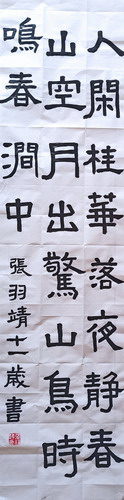 人閑桂華落夜静春
山空月出驚山鳥時
鳴春澗中
張羽靖十一歲書